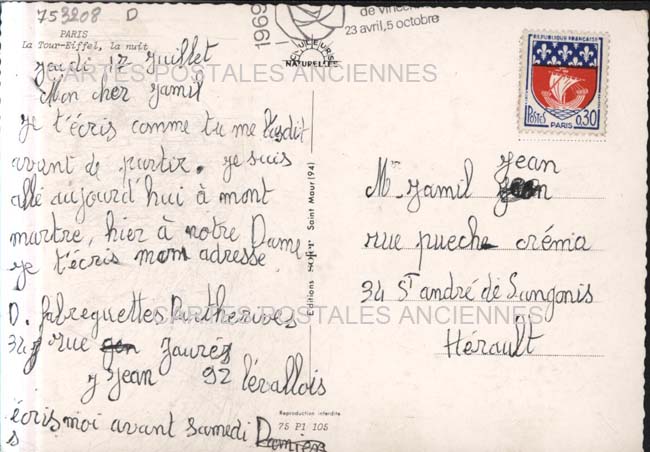 753208 D
PARIS
La Tour-Eiffel, la nuit
COULEURS
NATURELLES
1969
de Vincen
23 avril, 5 octobre
REPUBLIQUE FRANÇAISE
POSTES
PARIS
0,30
CARTES POSTALES ANCIENNES
jeudi 17 Juillet
Mon cher Jamil
je t'écris comme tu me l'as dit
avant de partir. je suis
allé aujourd'hui à mont
martre, hier à notre Dame
je t'écris mon adresse
D. fabreguettes
34 rue Jaurès
Jean 92 levallois
écris moi avant samedi Damien
s
Editions Saint Maur (94)
Reproduction interdite
75 P1 105
Mr Jamil Jean
rue puech créma
34 St andré de Sangonis
Hérault
CARTES POSTALES ANCIENNES